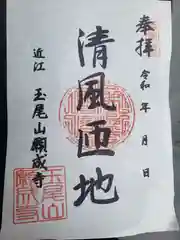 奉拝
令和 年 月 日
清風匝地
近江 玉尾山願成寺